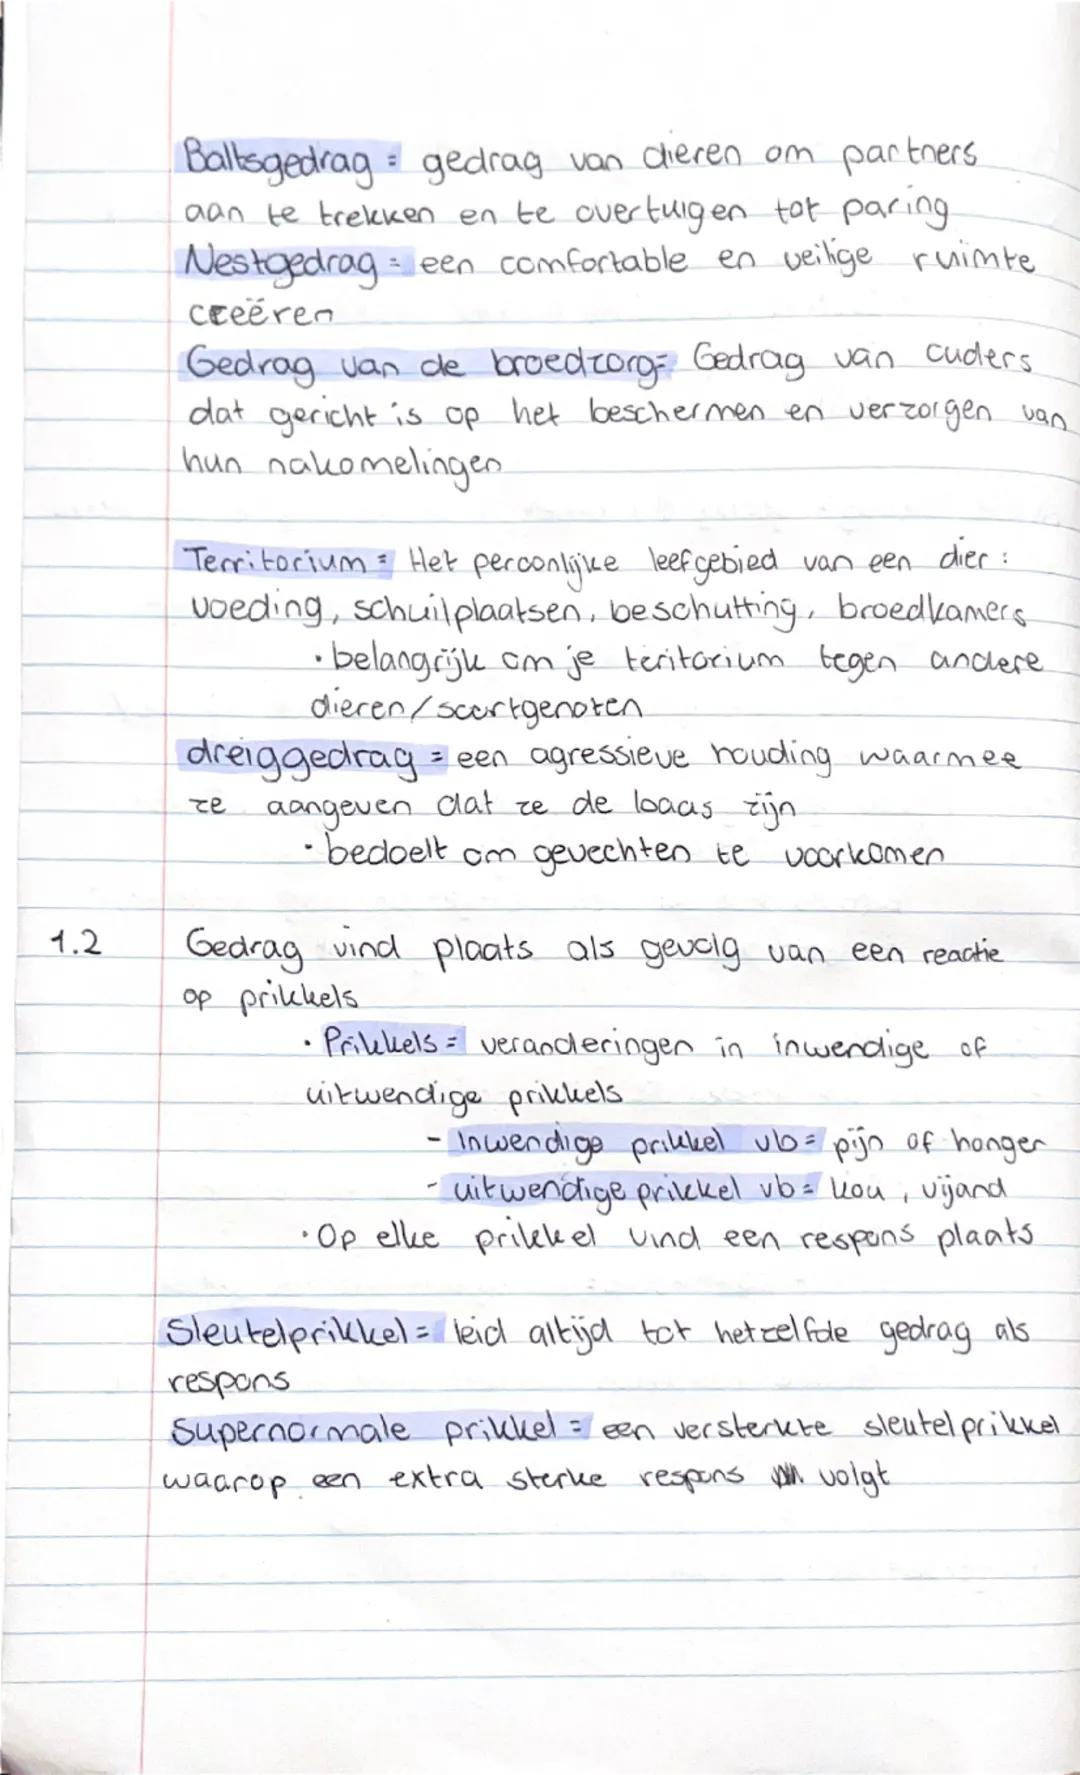 Baltsgedrag = gedrag van dieren om partners
aan te trekken en te overtuigen tot paring
Nestgedrag = een comfortable en veilige ruimte
creëren
Gedrag van de broedzorg = Gedrag van ouders
dat gericht is op het beschermen en verzorgen van
hun nakomelingen
Territorium = Het percoonlijke leefgebied van een dier :
voeding, schuilplaatsen, beschutting, broedkamers
• belangrijk om je teritorium tegen andere
dieren/soortgenoten
dreiggedrag = een agressieve houding waarmee
ze aangeven dat ze de baas zijn
• bedoelt om gevechten te voorkomen
1.2 Gedrag vind plaats als gevolg van een reactie
op prikkels
• Prikkels = veranderingen in inwendige of
uitwendige prikkels
- Inwendige prikkel vb = pijn of honger
- uitwendige prikkel vb = kou, vijand
• Op elke prikkel vind een respons plaats
Sleutelprikkel = leid altijd tot hetzelfde gedrag als
respons
Supernormale prikkel = een versterkte sleutelprikkel
waarop een extra sterke respons volgt